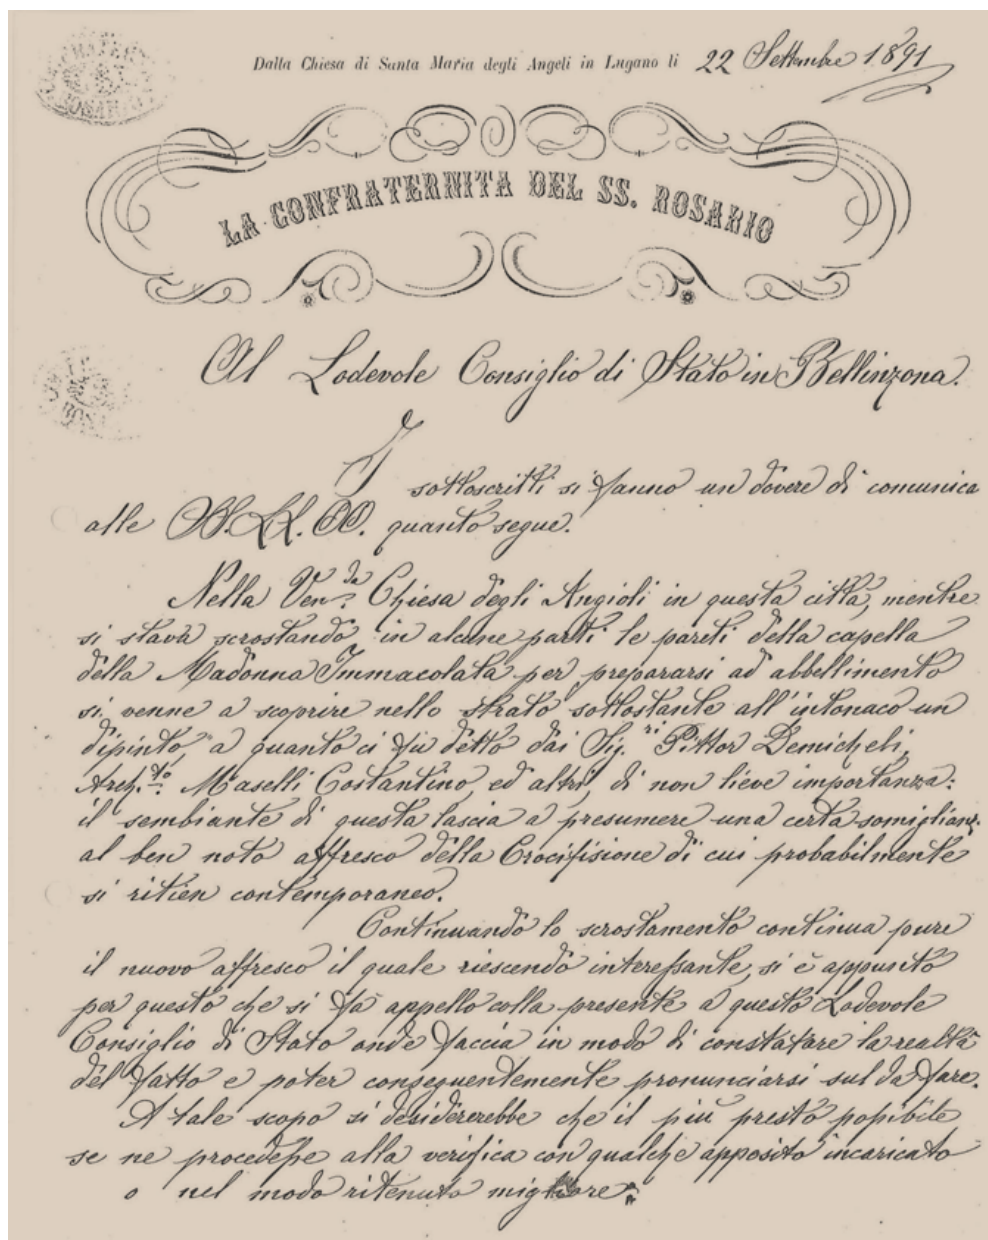 Dalla Chiesa di Santa Maria degli Angeli in Lugano li 22 Settembre 1891
LA CONFRATERNITA DEL SS. ROSARIO
Al Lodevole Consiglio di Stato in Bellinzona.
I sottoscritti si fanno un dovere di comunica
alle SS.LL.OO. quanto segue.
Nella Ven.da Chiesa degli Angioli in questa città, mentre
si stava scrostando in alcune parti le pareti della capella
della Madonna Immacolata per prepararsi ad abbellimento
si venne a scoprire nello strato sottostante all'intonaco un
dipinto, a quanto ci fu detto dai Sig.ri Pittor Demicheli,
Arch.to Maselli Costantino, ed altri, di non lieve importanza:
il sembiante di questa lascia a presumere una certa somiglianz.
al ben noto affresco della Crocifisione di cui probabilmente
si ritien contemporaneo.
Continuando lo scrostamento continua pure
il nuovo affresco il quale riescendo interessante, si è appunto
per questo che si fà appello colla presente a questo Lodevole
Consiglio di Stato onde faccia in modo di constatare la realtà
del fatto e poter conseguentemente pronunciarsi sul da fare.
A tale scopo si desidererebbe che il più presto possibile
se ne procedesse alla verifica con qualche apposito incaricato
o nel modo ritenuto migliore.